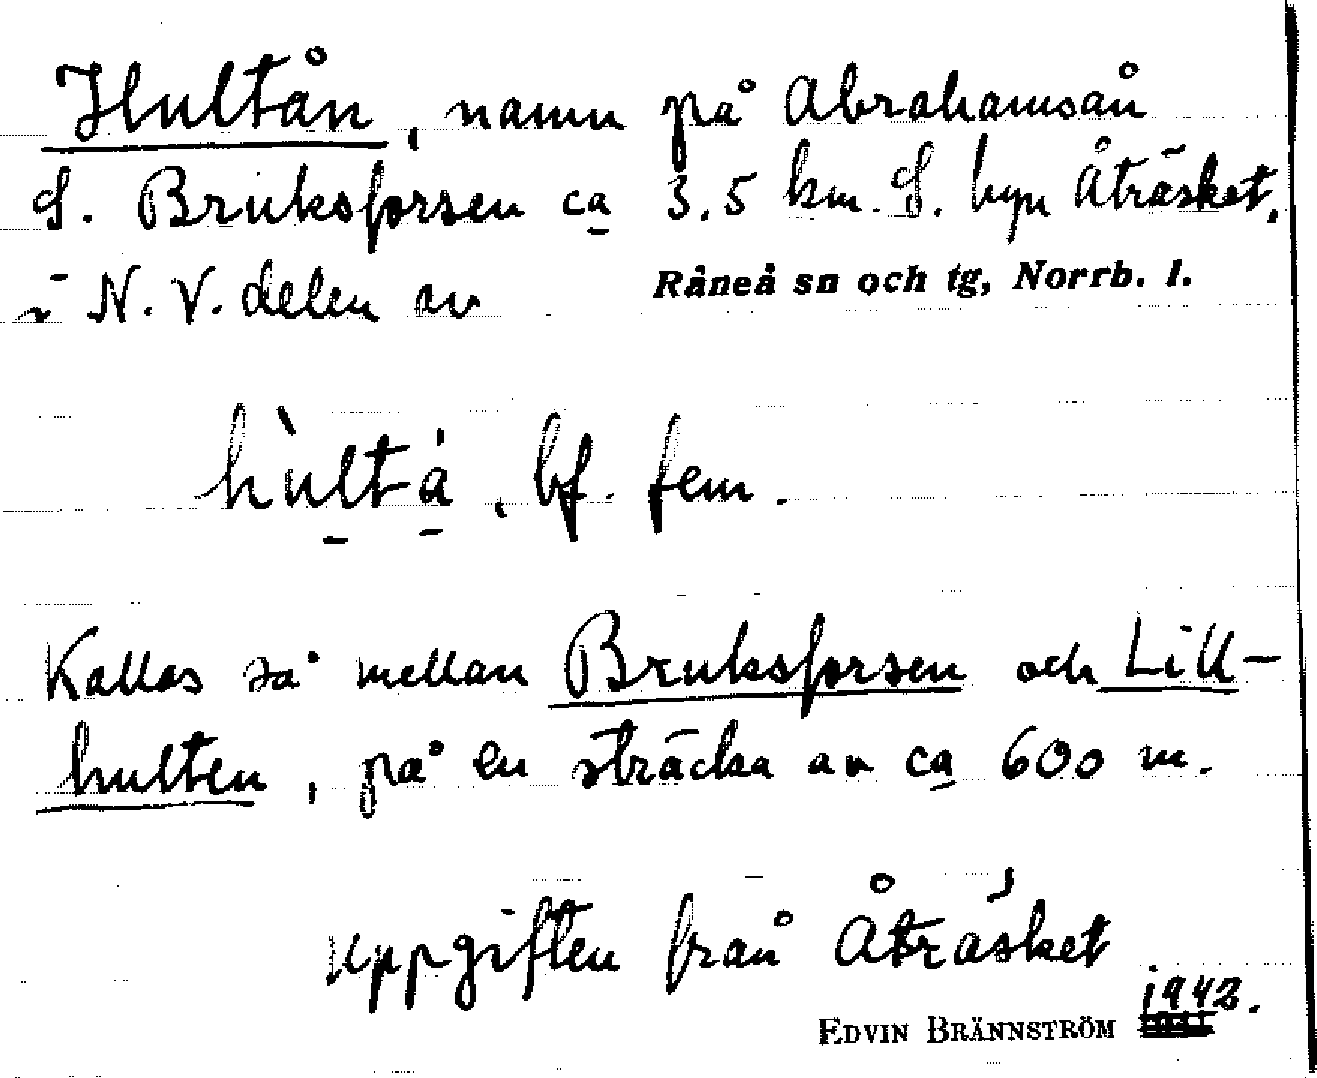 Hultån, namn på Abrahamsån
S. Bruksforsen ca 3.5 km S. byn Åträsket,
i N.V. delen av Råneå sn och tg, Norrb. l.
hùltá, bf. fem.
Kallas så mellan Bruksforsen och Lill-
hulten, på en sträcka av ca 600 m.
Uppgiften från Åträsket
EDVIN BRÄNNSTRÖM 1942.